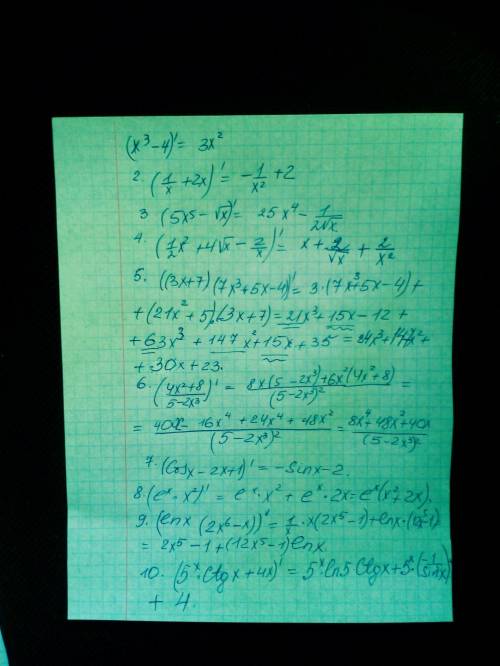 (x³-4)' = 3x²
2. (1/x + 2x)' = -1/x² + 2
3 (5x⁵ - √x)' = 25x⁴ - 1/(2√x)
4. (1/2 x² + 4√x - 2/x)' = x + 2/√x + 2/x²
5. ((3x+7)(7x³+5x-4))' = 3·(7x³+5x-4)+
+(21x²+5)·(3x+7) = 21x³+15x-12+
+63x³+147x²+15x+35 = 84x³+147x²+
+30x+23.
6. ((4x²+8)/(5-2x³))' = (8x(5-2x³)+6x²(4x²+8))/(5-2x³)² =
= (40x-16x⁴+24x⁴+48x²)/(5-2x³)² = (8x⁴+48x²+40x)/(5-2x³)²
7. (cosx-2x+1)' = -sinx-2.
8. (eˣ·x²)' = eˣ·x² + eˣ·2x = eˣ(x²+2x).
9. (lnx (2x⁶-x))' = 1/x · x(2x⁵-1)+lnx·(12x⁵-1)
= 2x⁵-1+(12x⁵-1)lnx
10. (5ˣ·ctgx+4x)' = 5ˣln5 ctgx+5ˣ·(-1/sin²x)
+ 4.